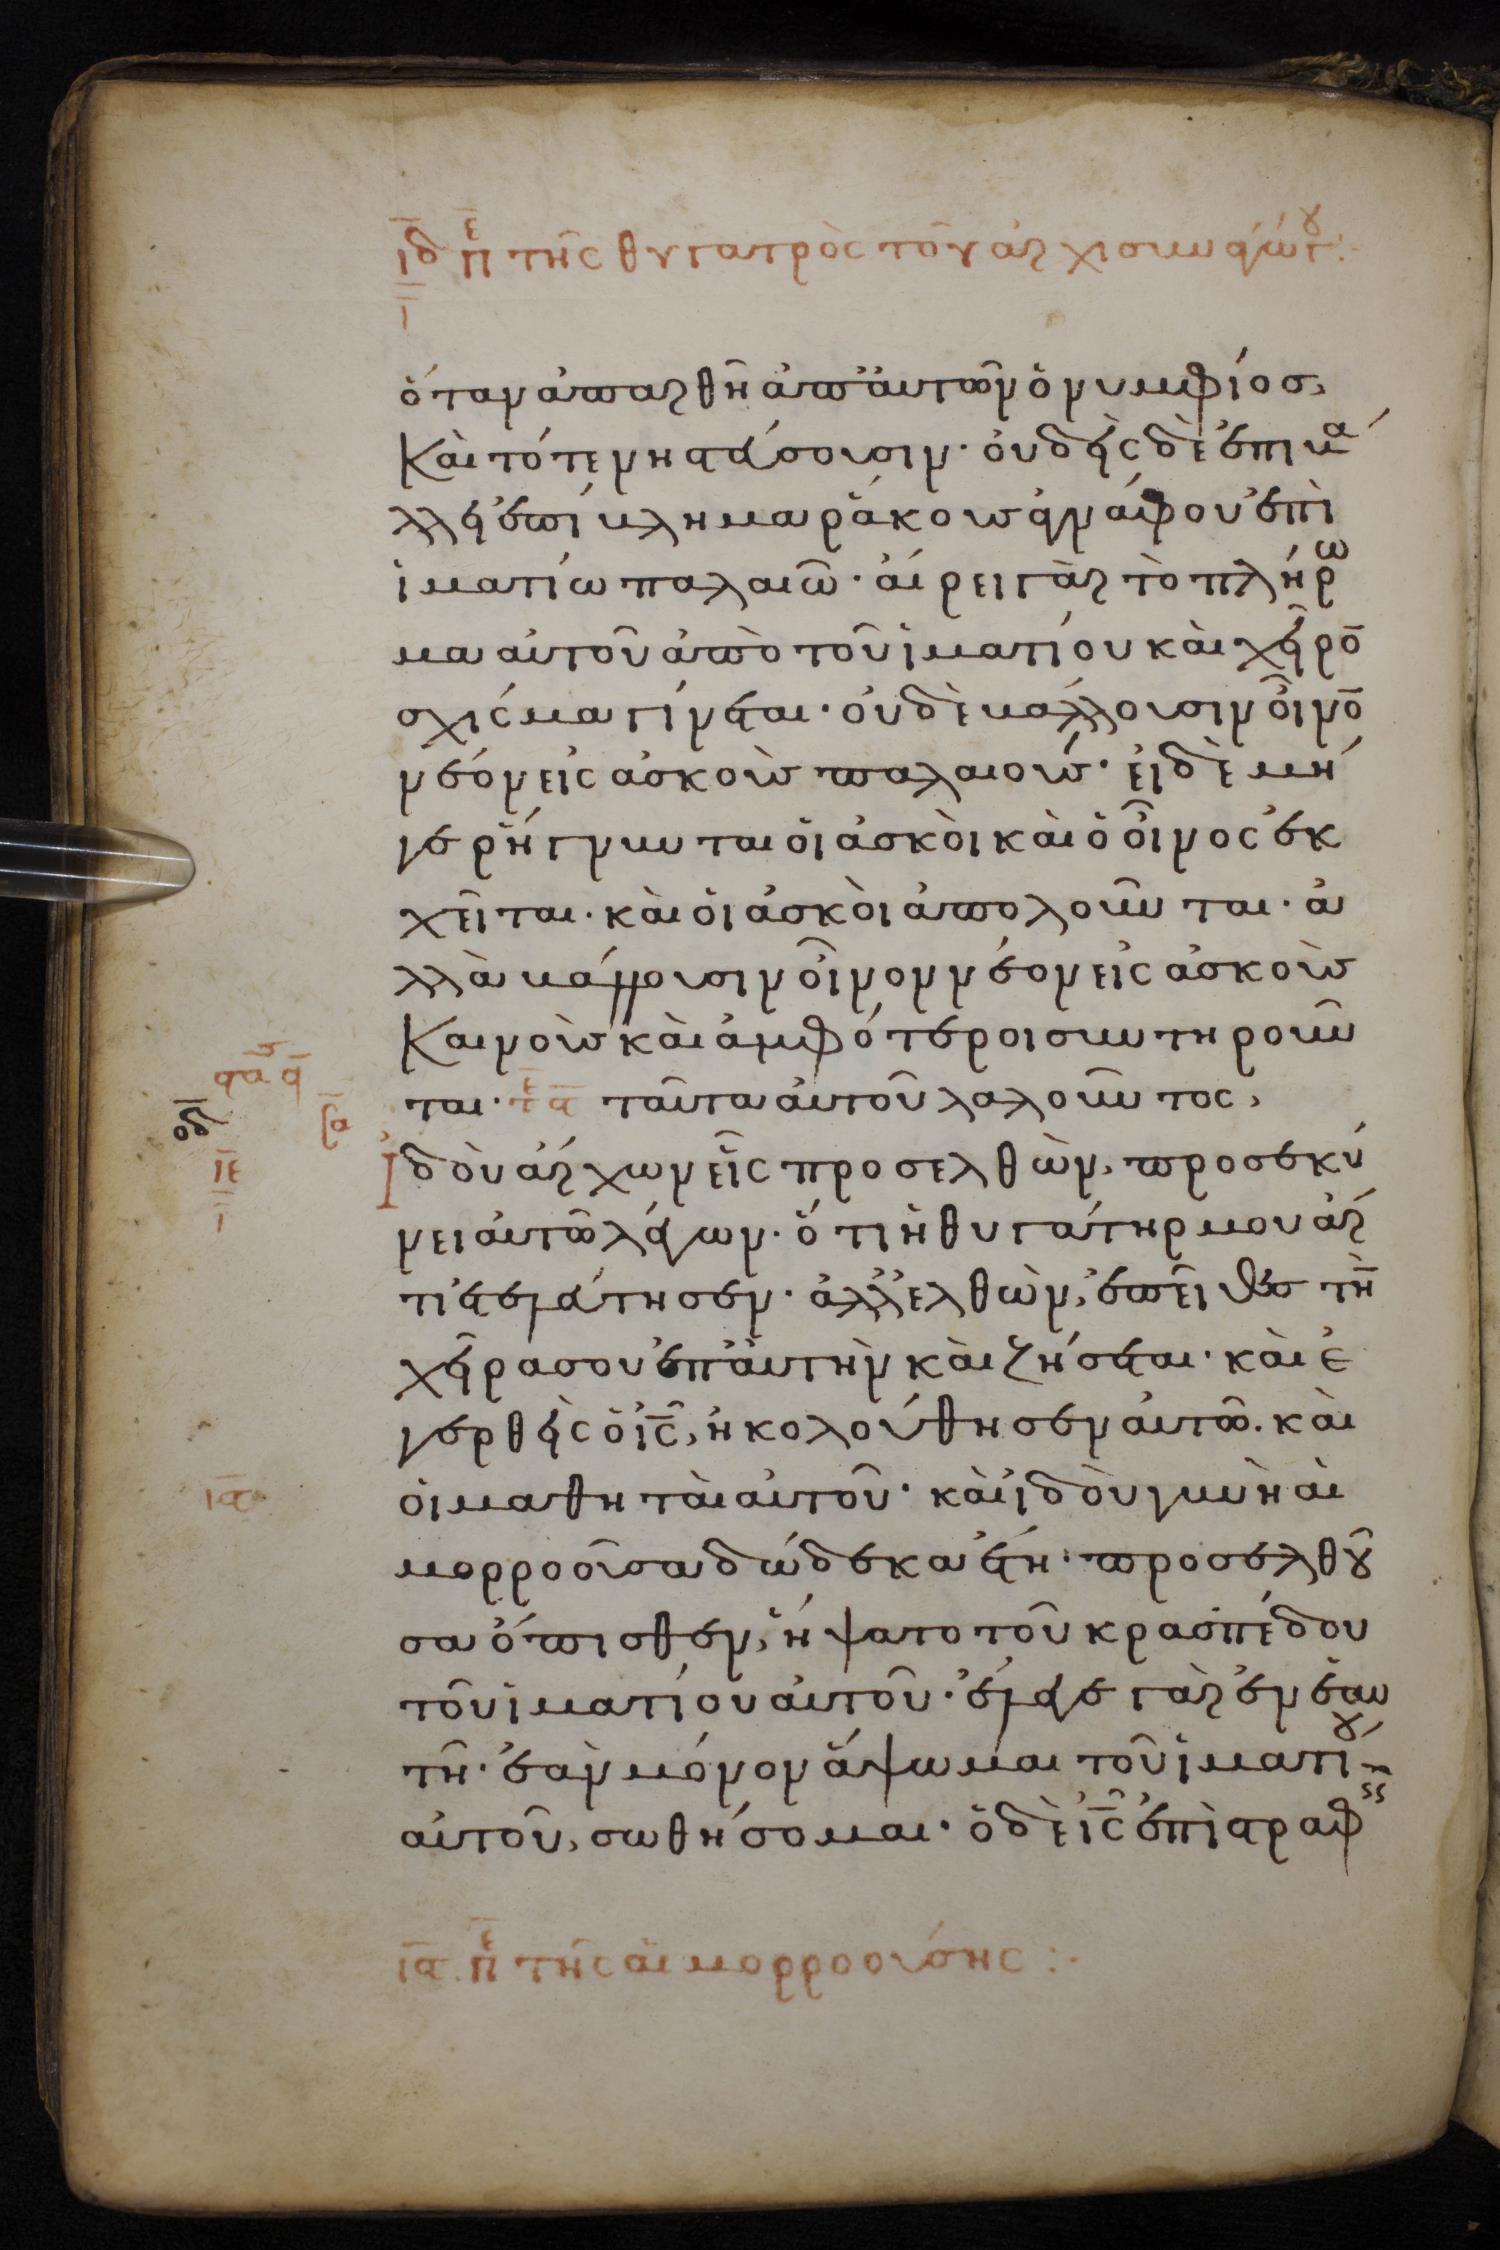 ιδ πε τῆς θυγατρὸς τοῦ ἀρχισυναγώγου:·
ι
ὅταν ἀπαρθῆ ἀπ' ἀυτῶν ὁ νυμφίος,
Καὶ τότε νηστεύσουσιν· ὀυδεὶς δὲ ἐπιβά
λλει ἐπίβλημα ῥάκους ἀγνάφου ἐπὶ
ἱματίω παλαιῶ· ἄιρει γὰρ τὸ πλήρω
μα αὐτοῦ ἀπὸ τοῦ ἱματίου καὶ χεῖρο
σχίσμα γίνεται· ὀυδὲ βάλλουσιν ὄινο
νέον εἰς ἀσκοὺς παλαιούς· εἰ δὲ μή
γε ῥήγνυνται ὁι ἀσκοὶ καὶ ὁ ὄινος ἐκ
χεῖται· καὶ ὁι ἀσκοὶ ἀπολοῦνται· ἀ
λλὰ βάλλουσιν ὄινον νέον εἰς ἀσκοὺς
Καινοὺς καὶ ἀμφότεροι συντηροῦν
ται· τε ταῦτα αὐτοῦ λαλοῦντος,
ιε
ι
Ἰδοὺ ἄρχων εἷς προσελθὼν, προσεκύ
νει ἀυτῶ λέγων· ὅτι ἡ θυγάτηρ μου ἄρ
τι ἐτελεύτησεν· ἀλλ' ἐλθὼν, ἐπίθες τὴ
χεῖρα σου ἐπ' ἀυτὴν καὶ ζήσεται· καὶ ἐ
γερθεὶς ὁ ις, ἠκολούθησεν ἀυτῶ. καὶ
ια
ὁι μαθηταὶ αὐτοῦ· καὶ ἰδοὺ γυνὴ αἱ
μορροοῦσα δώδεκα ἔτη· προσελθοῦ
σα ὄπισθεν, ἥψατο τοῦ κρασπέδου
τοῦ ἱματίου ἀυτοῦ· ἔλεγε γὰρ ἐν ἑαυ
τῆ· ἐὰν μόνον ἅψωμαι τοῦ ἱματίου
αὐτοῦ, σωθήσομαι· ὁ δὲ ις ἐπιστραφεις
ια πε τῆς αἱμορροούσης :·